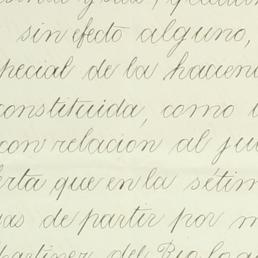 sin efecto alguno,
pecial de la hacien
constituida, como
con relacion al ju
erta, que en la sétim
as de partir por m
Martinez del Rio lo a